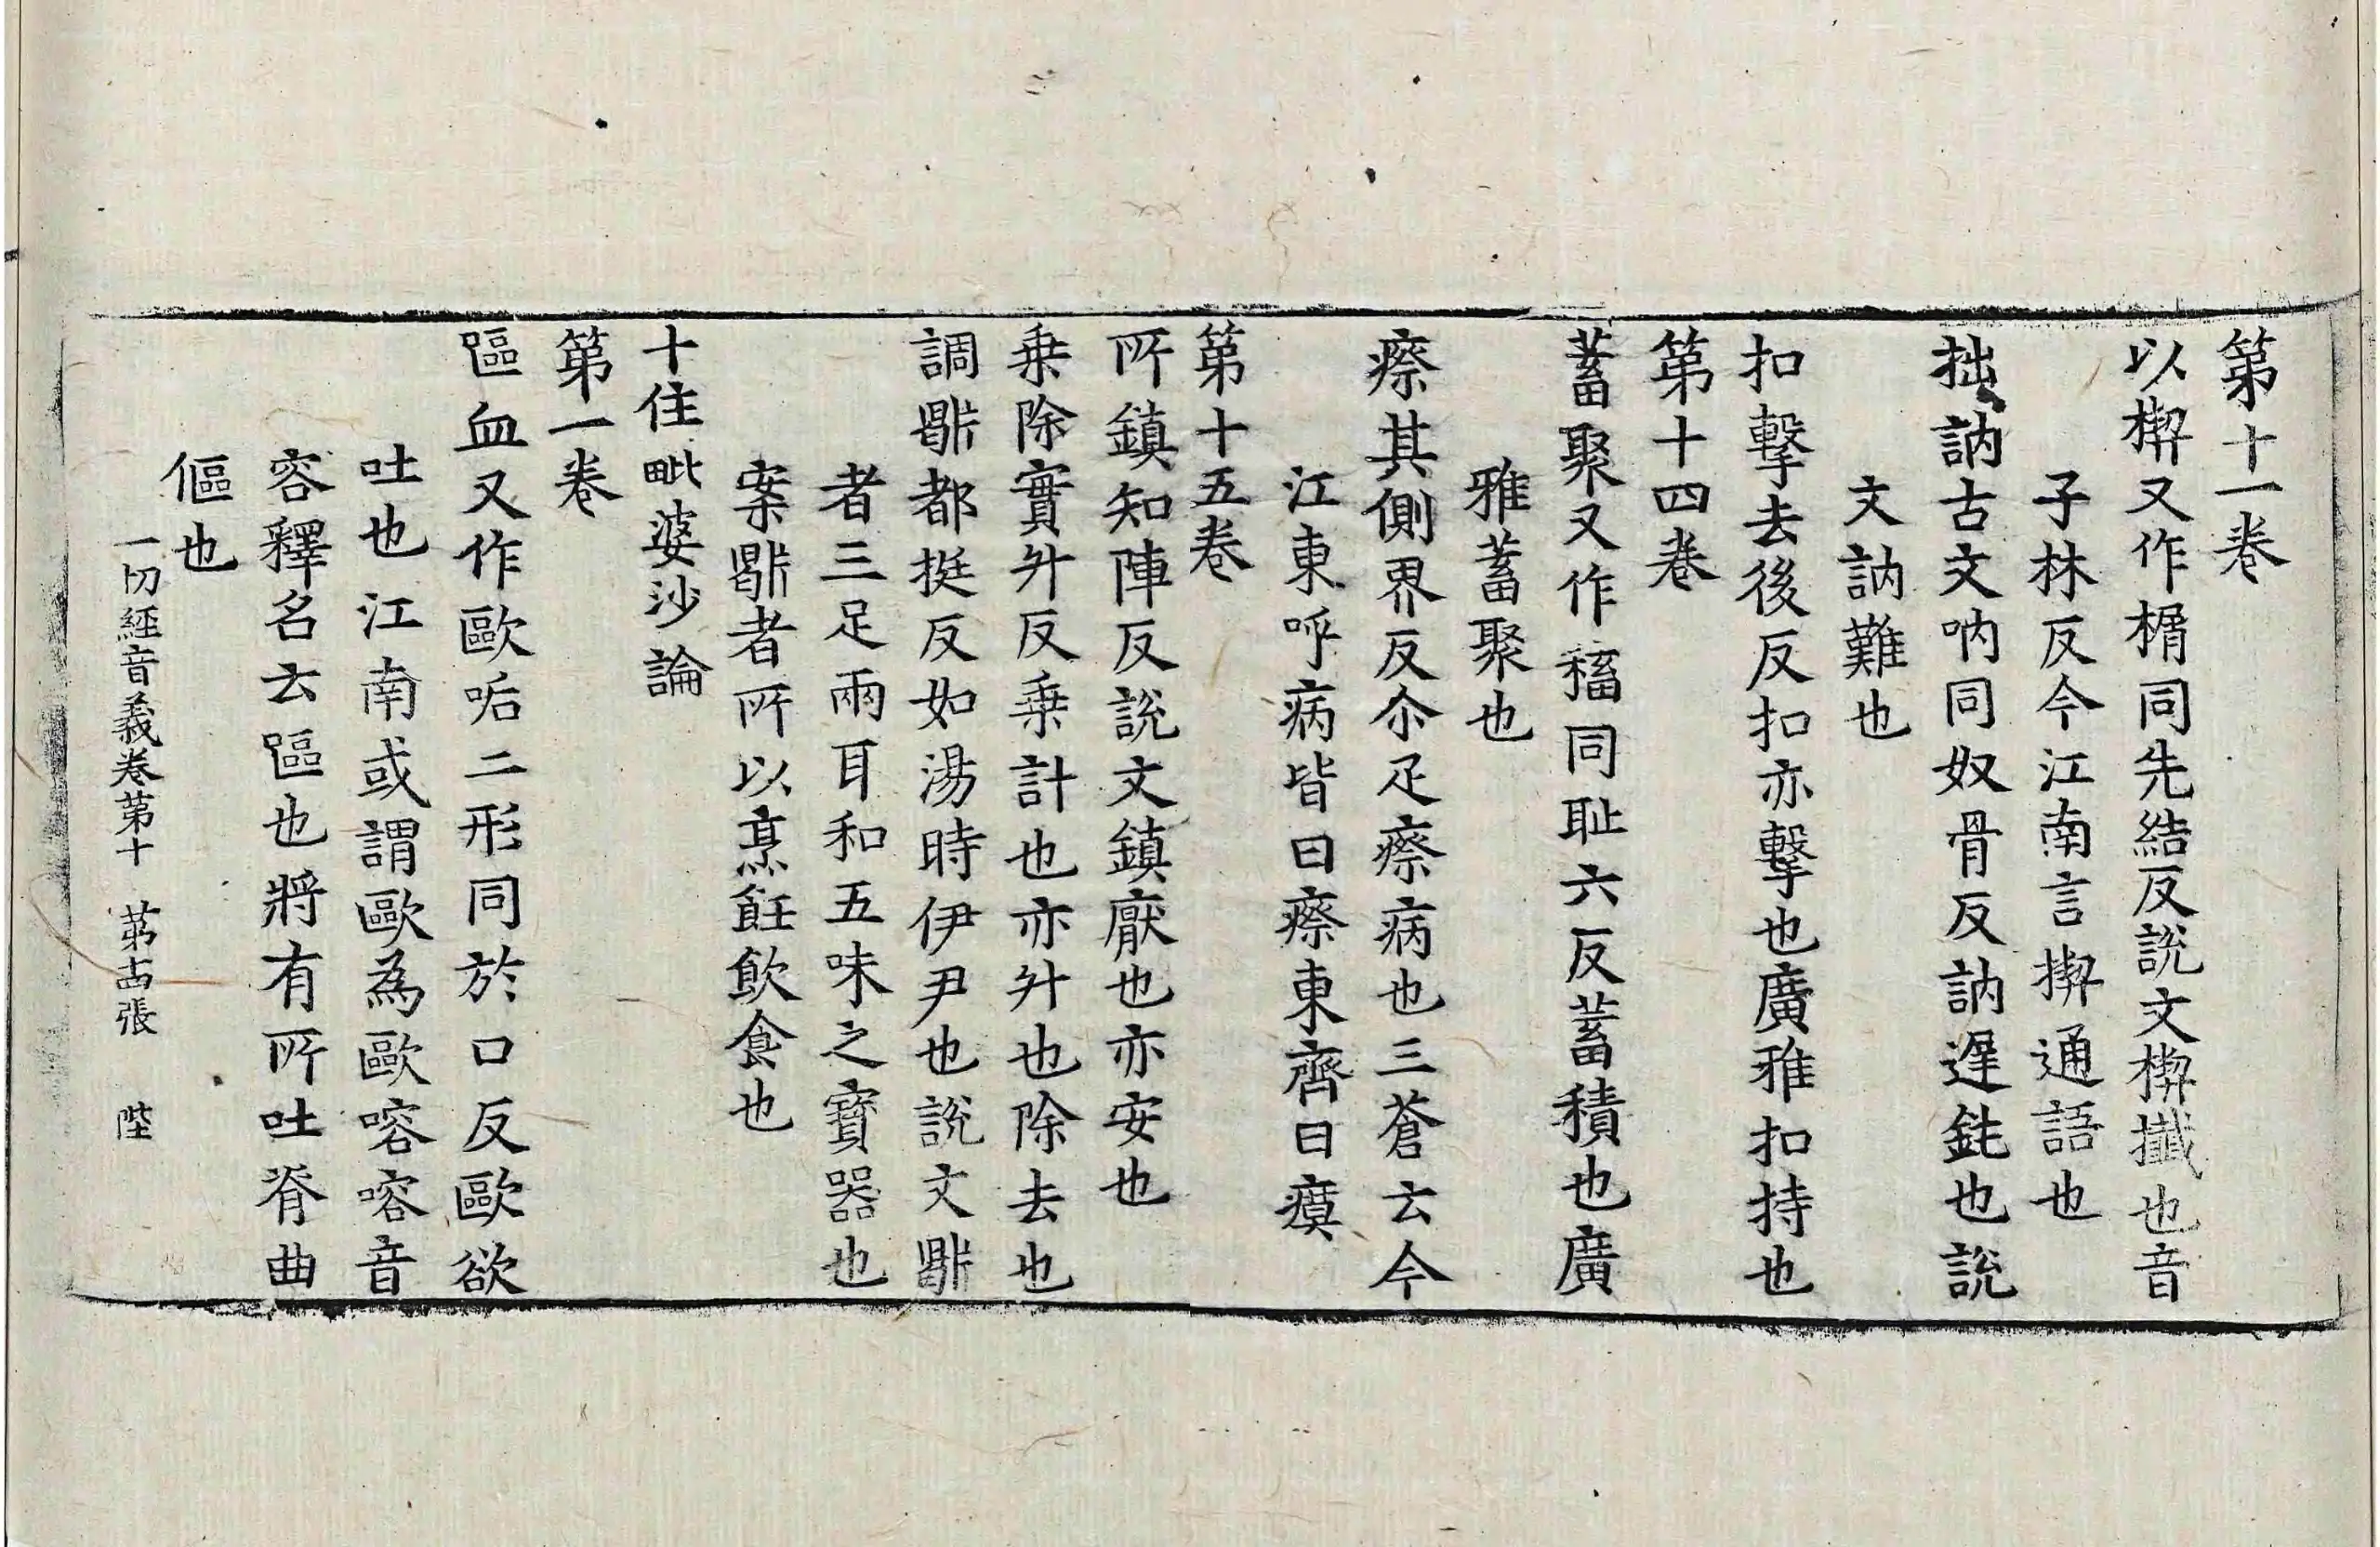 第十一卷
以楔又作榍同先結反說文楔攕也音
子林反今江南言㨝通語也
拙訥古文吶同奴骨反訥遟鈍也說
文訥難也
扣擊去後反扣亦擊也廣雅扣持也
第十四卷
蓄聚又作稸同耻六反蓄積也廣
雅蓄聚也
瘵其側界反尒疋瘵病也三蒼云今
江東呼病皆曰瘵東齊曰瘼
第十五卷
所鎮知陣反說文鎮厭也亦安也
乗除實升反乗計也亦升也除去也
調鼎都挺反如湯時伊尹也說文鼎
者三足兩耳和五味之寶器也
案鼎者所以烹飪飲食也
十住毗婆沙論
第一卷
嘔血又作歐㖃二形同於口反歐欲
吐也江南或謂歐為歐㗖㗖音
容釋名云嘔也將有所吐脊曲
傴也
一切經音義卷第十 第古張 陛